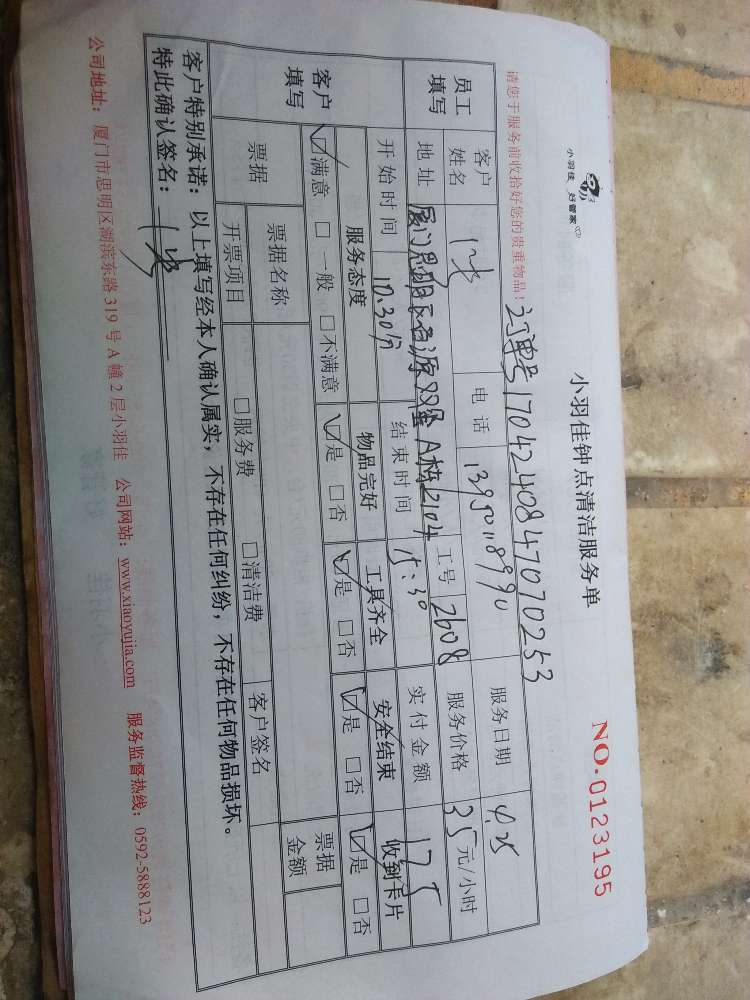 小羽佳 好管家
小羽佳钟点清洁服务单
NO.0123195
请您于服务前收拾好您的贵重物品！ 订单号170424084707070253
员工填写 客户姓名 电话 服务日期 4.25
地址 厦门思明区 A栋2104 工号 2608 服务价格 35元/小时
开始时间 10.30分 结束时间 15:30 实付金额 175
客户填写 服务态度 物品完好 工具齐全 安全结束 收到卡片
☑满意 □一般 □不满意 ☑是 □否 ☑是 □否 ☑是 □否 ☑是 □否
票据 票据名称 客户签名 票据金额
开票项目 □服务费 □清洁费
客户特别承诺：以上填写经本人确认属实，不存在任何纠纷，不存在任何物品损坏。
特此确认签名：
公司地址：厦门市思明区湖滨东路319号A幢2层小羽佳 公司网站：www.xiaoyujia.com 服务监督热线：0592-5888123